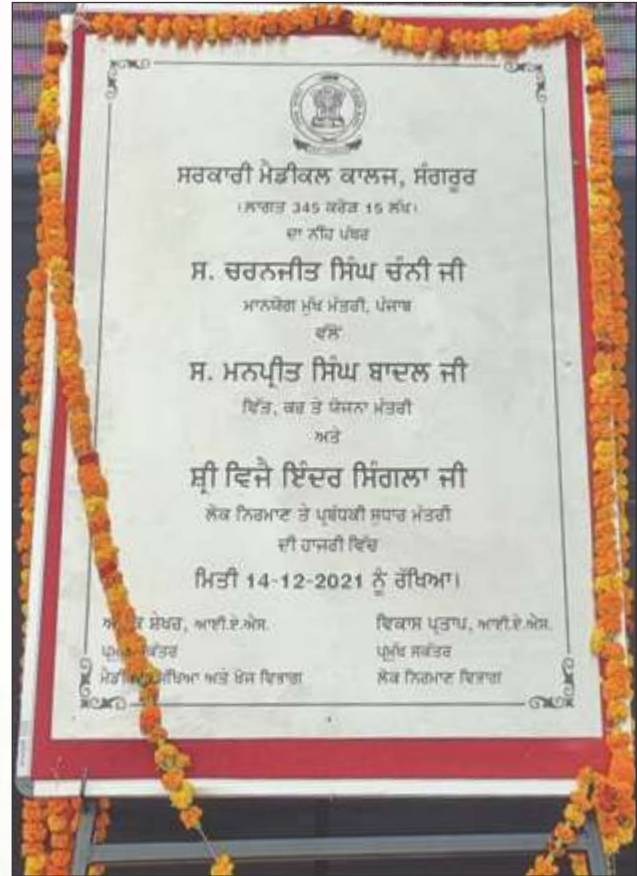 ਸਰਕਾਰੀ ਮੈਡੀਕਲ ਕਾਲਜ, ਸੰਗਰੂਰ
(ਲਾਗਤ 345 ਕਰੋੜ 15 ਲੱਖ)
ਦਾ ਨੀਂਹ ਪੱਥਰ
ਸ. ਚਰਨਜੀਤ ਸਿੰਘ ਚੰਨੀ ਜੀ
ਮਾਨਯੋਗ ਮੁੱਖ ਮੰਤਰੀ, ਪੰਜਾਬ
ਵੱਲੋਂ
ਸ. ਮਨਪ੍ਰੀਤ ਸਿੰਘ ਬਾਦਲ ਜੀ
ਵਿੱਤ, ਕਰ ਤੇ ਯੋਜਨਾ ਮੰਤਰੀ
ਅਤੇ
ਸ਼੍ਰੀ ਵਿਜੈ ਇੰਦਰ ਸਿੰਗਲਾ ਜੀ
ਲੋਕ ਨਿਰਮਾਣ ਤੇ ਪ੍ਰਬੰਧਕੀ ਸੁਧਾਰ ਮੰਤਰੀ
ਦੀ ਹਾਜਰੀ ਵਿੱਚ
ਮਿਤੀ 14-12-2021 ਨੂੰ ਰੱਖਿਆ।
ਸ਼ੇਖਰ, ਆਈ.ਏ.ਐਸ.
ਪ੍ਰਮੁੱਖ ਸਕੱਤਰ
ਅਤੇ ਖੋਜ ਵਿਭਾਗ
ਵਿਕਾਸ ਪ੍ਰਤਾਪ, ਆਈ.ਏ.ਐਸ.
ਪ੍ਰਮੁੱਖ ਸਕੱਤਰ
ਲੋਕ ਨਿਰਮਾਣ ਵਿਭਾਗ